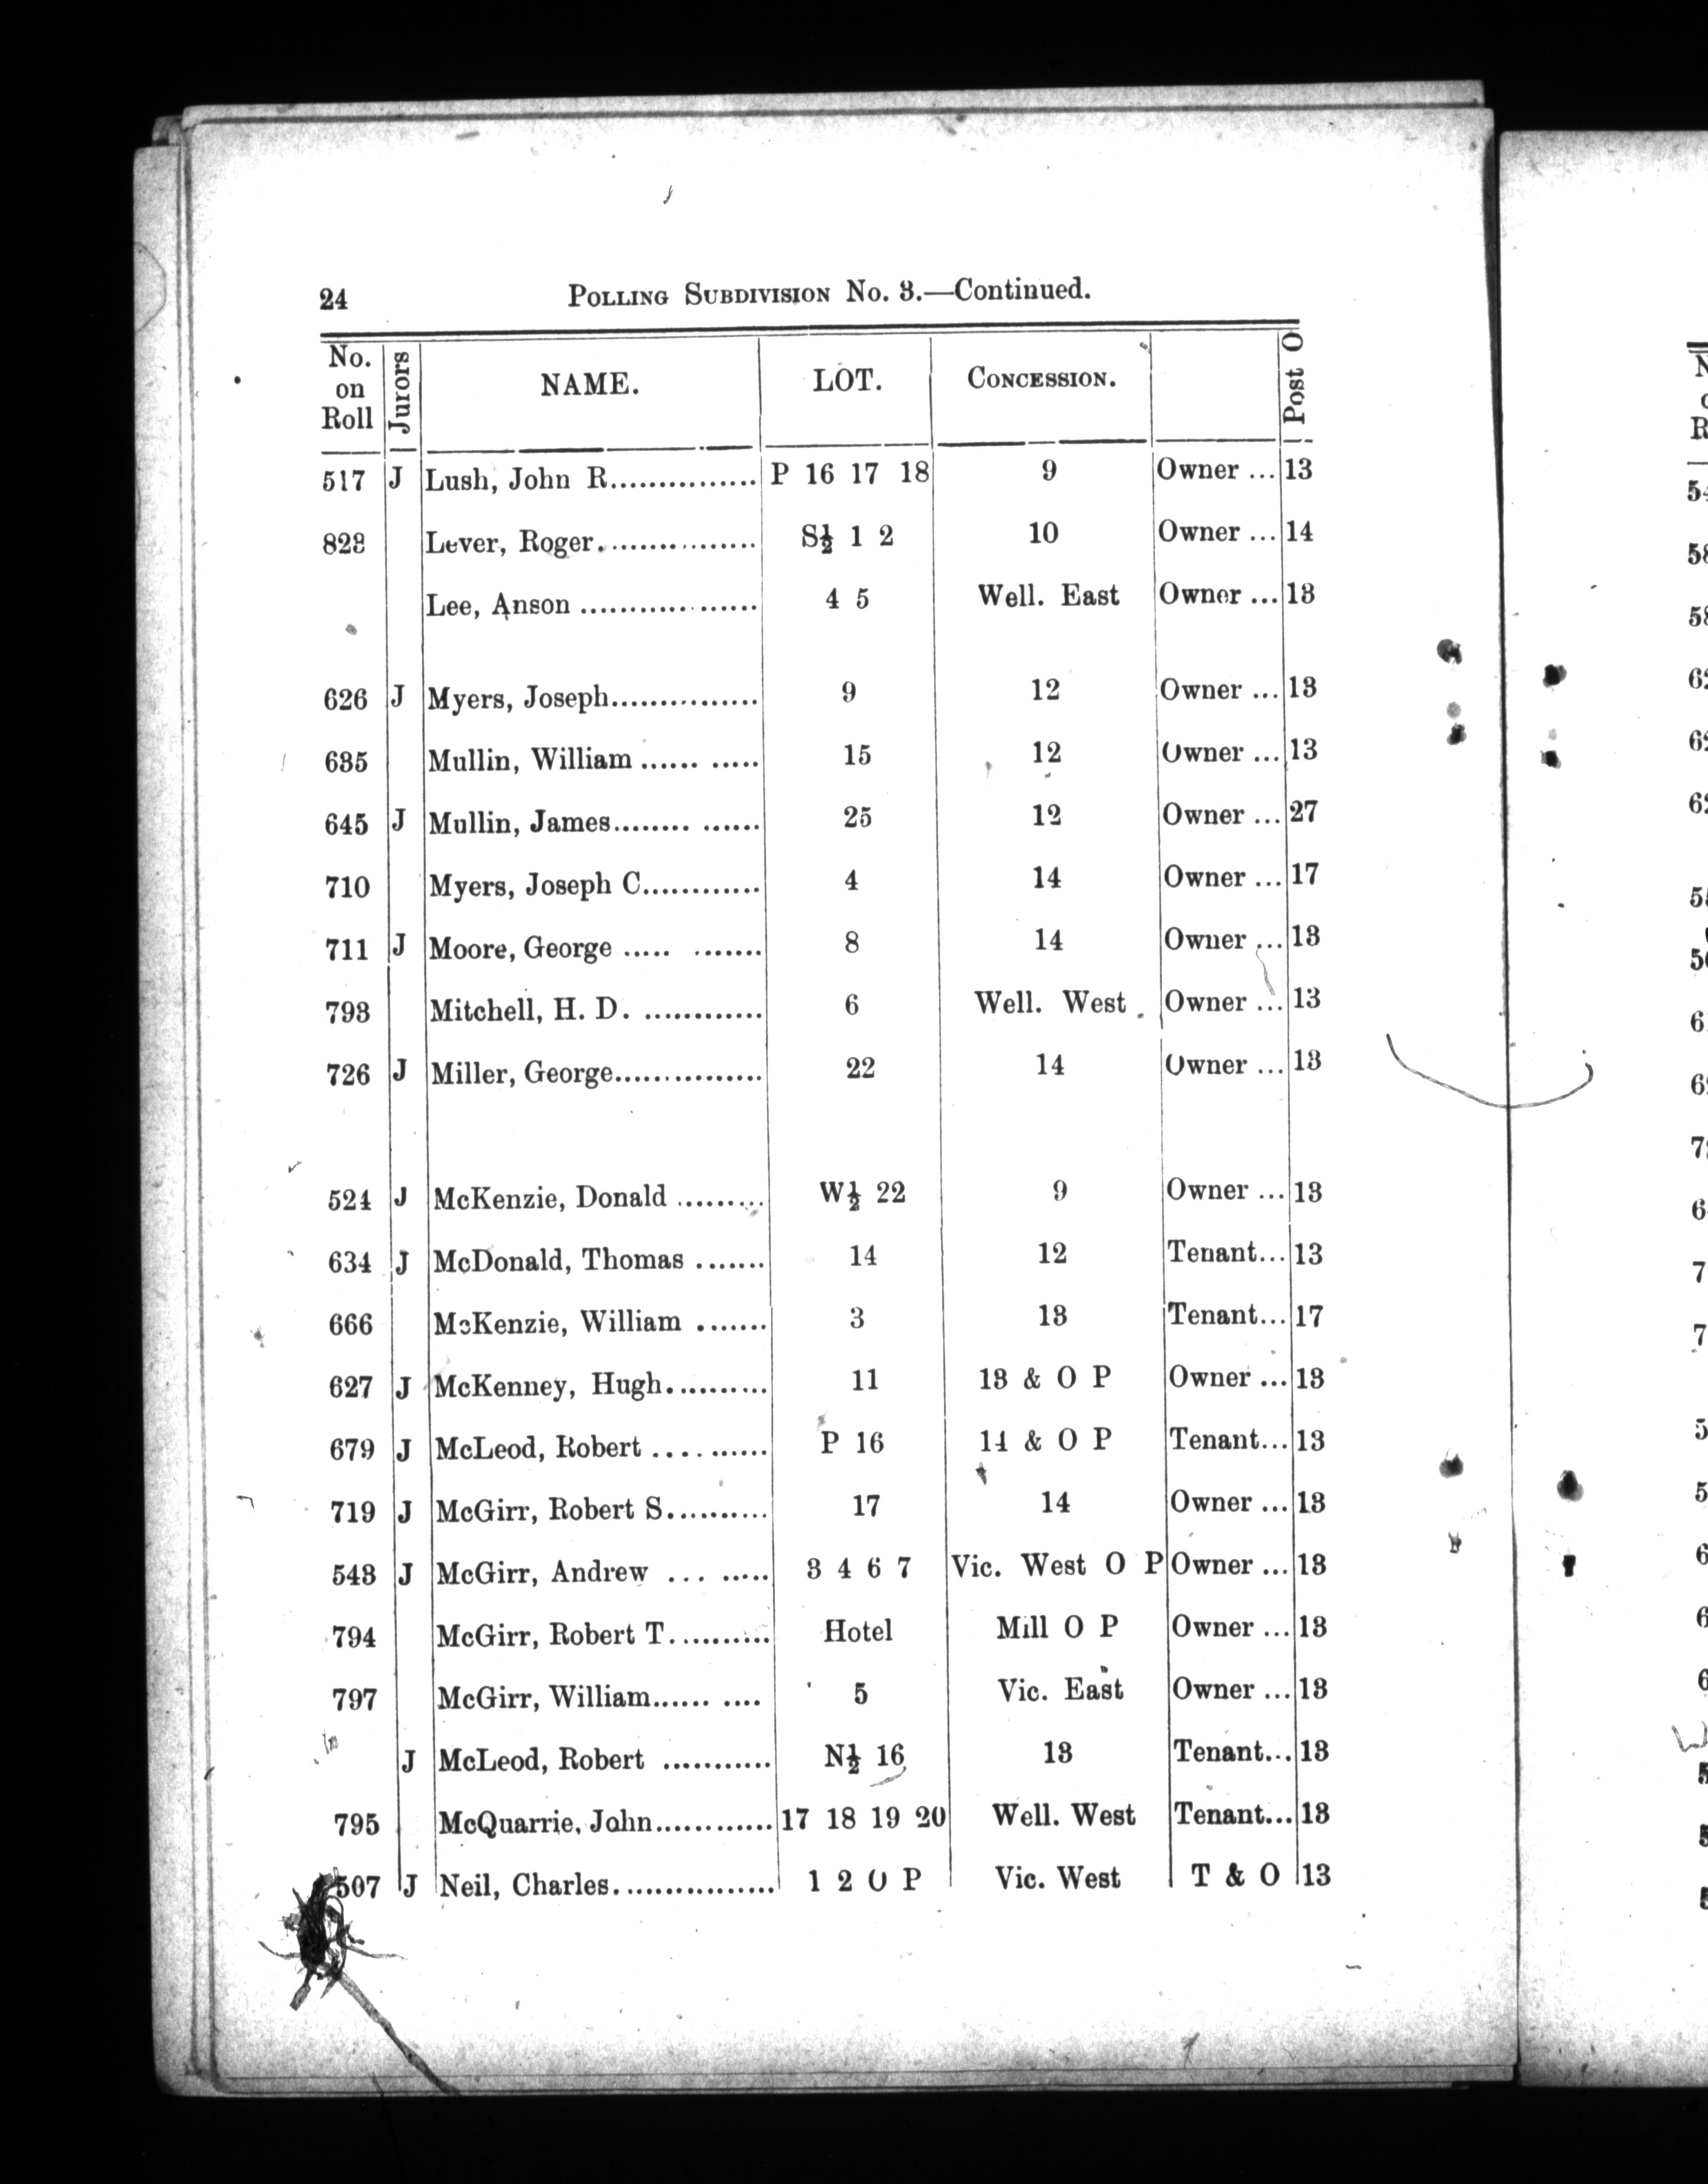 24 POLLING SUBDIVISION No. 3.—Continued.
No. on Roll Jurors NAME. LOT. CONCESSION. Post O
517 J Lush, John R............... P 16 17 18 9 Owner ... 13
823 Lever, Roger................ S½ 1 2 10 Owner ... 14
Lee, Anson .................. 4 5 Well. East Owner ... 13
626 J Myers, Joseph............... 9 12 Owner ... 13
635 Mullin, William ...... ..... 15 12 Owner ... 13
645 J Mullin, James........ ...... 25 12 Owner ... 27
710 Myers, Joseph C............ 4 14 Owner ... 17
711 J Moore, George ..... ....... 8 14 Owner ... 13
793 Mitchell, H. D. ............ 6 Well. West Owner ... 13
726 J Miller, George............... 22 14 Owner ... 13
524 J McKenzie, Donald ......... W½ 22 9 Owner ... 13
634 J McDonald, Thomas ....... 14 12 Tenant... 13
666 McKenzie, William ....... 3 13 Tenant... 17
627 J McKenney, Hugh.......... 11 13 & O P Owner ... 13
679 J McLeod, Robert .......... P 16 14 & O P Tenant... 13
719 J McGirr, Robert S.......... 17 14 Owner ... 13
543 J McGirr, Andrew ... ..... 3 4 6 7 Vic. West O P Owner ... 13
794 McGirr, Robert T.......... Hotel Mill O P Owner ... 13
797 McGirr, William...... .... 5 Vic. East Owner ... 13
J McLeod, Robert ........... N½ 16 13 Tenant... 13
795 McQuarrie, John............ 17 18 19 20 Well. West Tenant... 13
507 J Neil, Charles................ 1 2 O P Vic. West T & O 13